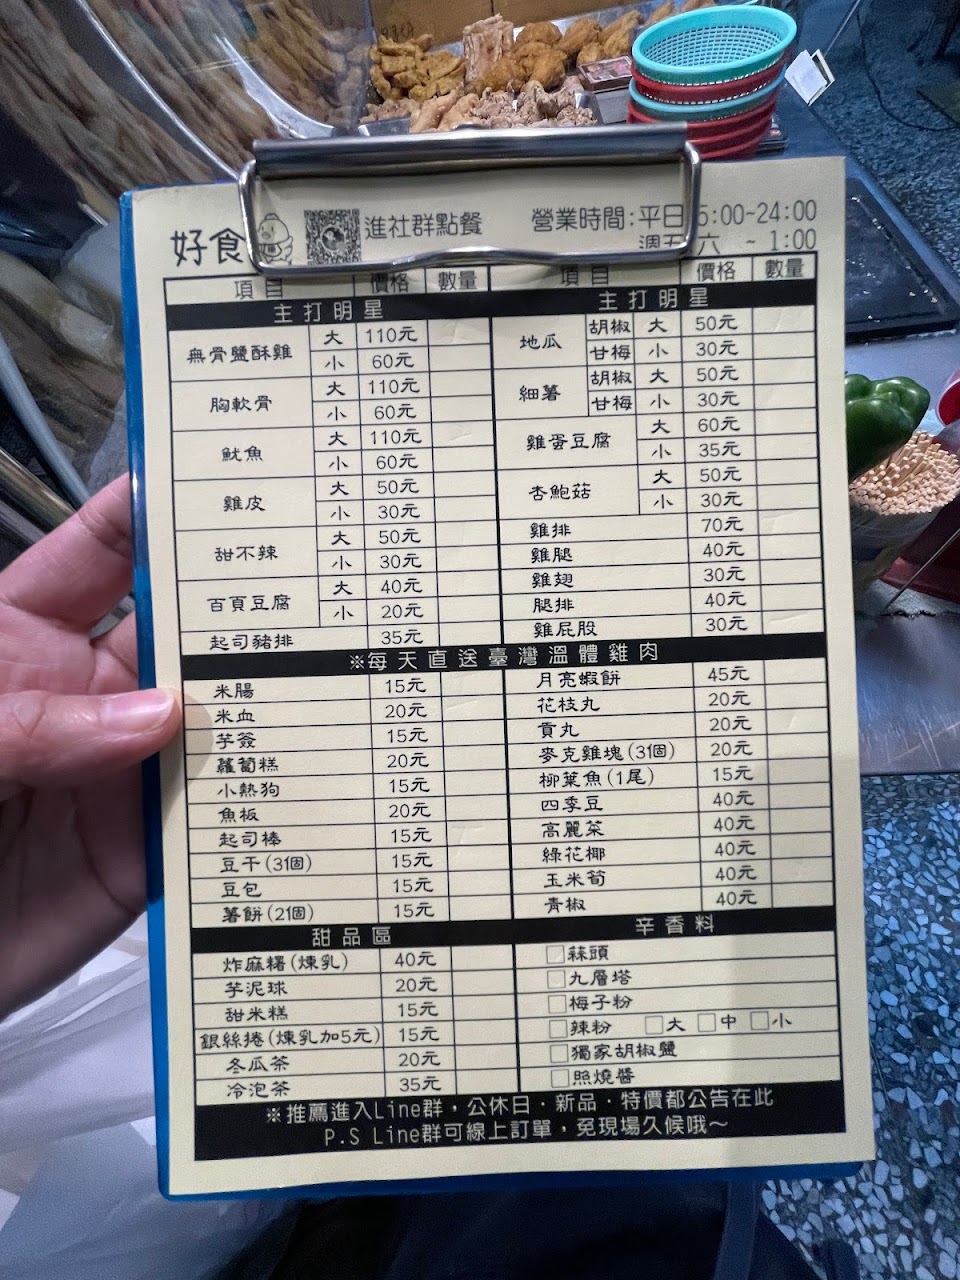 好食
進社群點餐
營業時間:平日 5:00~24:00
週五 六 ~ 1:00
項目 價格 數量 項目 價格 數量
主打明星 主打明星
無骨鹽酥雞 大 110元 地瓜 胡椒 大 50元
小 60元 甘梅 小 30元
胸軟骨 大 110元 細薯 胡椒 大 50元
小 60元 甘梅 小 30元
魷魚 大 110元 雞蛋豆腐 大 60元
小 60元 小 35元
雞皮 大 50元 杏鮑菇 大 50元
小 30元 小 30元
甜不辣 大 50元 雞排 70元
小 30元 雞腿 40元
百頁豆腐 大 40元 雞翅 30元
小 20元 腿排 40元
起司豬排 35元 雞屁股 30元
※每天直送臺灣溫體雞肉
米腸 15元 月亮蝦餅 45元
米血 20元 花枝丸 20元
芋簽 15元 貢丸 20元
蘿蔔糕 20元 麥克雞塊(3個) 20元
小熱狗 15元 柳葉魚(1尾) 15元
魚板 20元 四季豆 40元
起司棒 15元 高麗菜 40元
豆干(3個) 15元 綠花椰 40元
豆包 15元 玉米筍 40元
薯餅(2個) 15元 青椒 40元
甜品區 辛香料
炸麻糬(煉乳) 40元 □蒜頭
芋泥球 20元 □九層塔
甜米糕 15元 □梅子粉
銀絲捲(煉乳加5元) 15元 □辣粉 □大 □中 □小
冬瓜茶 20元 □獨家胡椒鹽
冷泡茶 35元 □照燒醬
※推薦進入Line群，公休日．新品．特價都公告在此
P.S Line群可線上訂單，免現場久候哦～